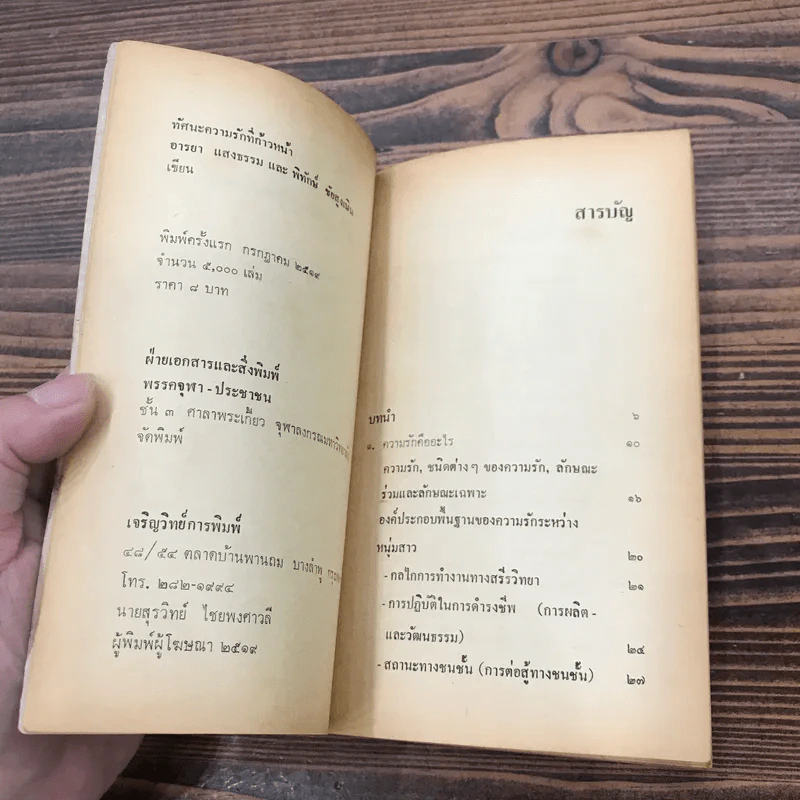 ทัศนะความรักที่ก้าวหน้า
อารยา แสงธรรม และ พิทักษ์ ชัยสูงเนิน
เขียน
พิมพ์ครั้งแรก กรกฎาคม ๒๕๑๙
จำนวน ๕,๐๐๐ เล่ม
ราคา ๘ บาท
ฝ่ายเอกสารและสิ่งพิมพ์
พรรคจุฬา - ประชาชน
ชั้น ๓ ศาลาพระเกี้ยว จุฬาลงกรณมหาวิทยาลัย
จัดพิมพ์
เจริญวิทย์การพิมพ์
๔๘/๕๔ ตลาดบ้านพานถม บางลำพู
โทร. ๒๘๒-๑๙๙๔
นายสุรวิทย์ ไชยพงศาวลี
ผู้พิมพ์ผู้โฆษณา ๒๕๑๙
สารบัญ
บทนำ ๖
๑. ความรักคืออะไร ๑๐
ความรัก, ชนิดต่าง ๆ ของความรัก, ลักษณะ
ร่วมและลักษณะเฉพาะ ๑๖
องค์ประกอบพื้นฐานของความรักระหว่าง
หนุ่มสาว ๒๐
- กลไกการทำงานทางสรีรวิทยา ๒๑
- การปฏิบัติในการดำรงชีพ (การผลิต -
และวัฒนธรรม) ๒๔
- สถานะทางชนชั้น (การต่อสู้ทางชนชั้น) ๒๗